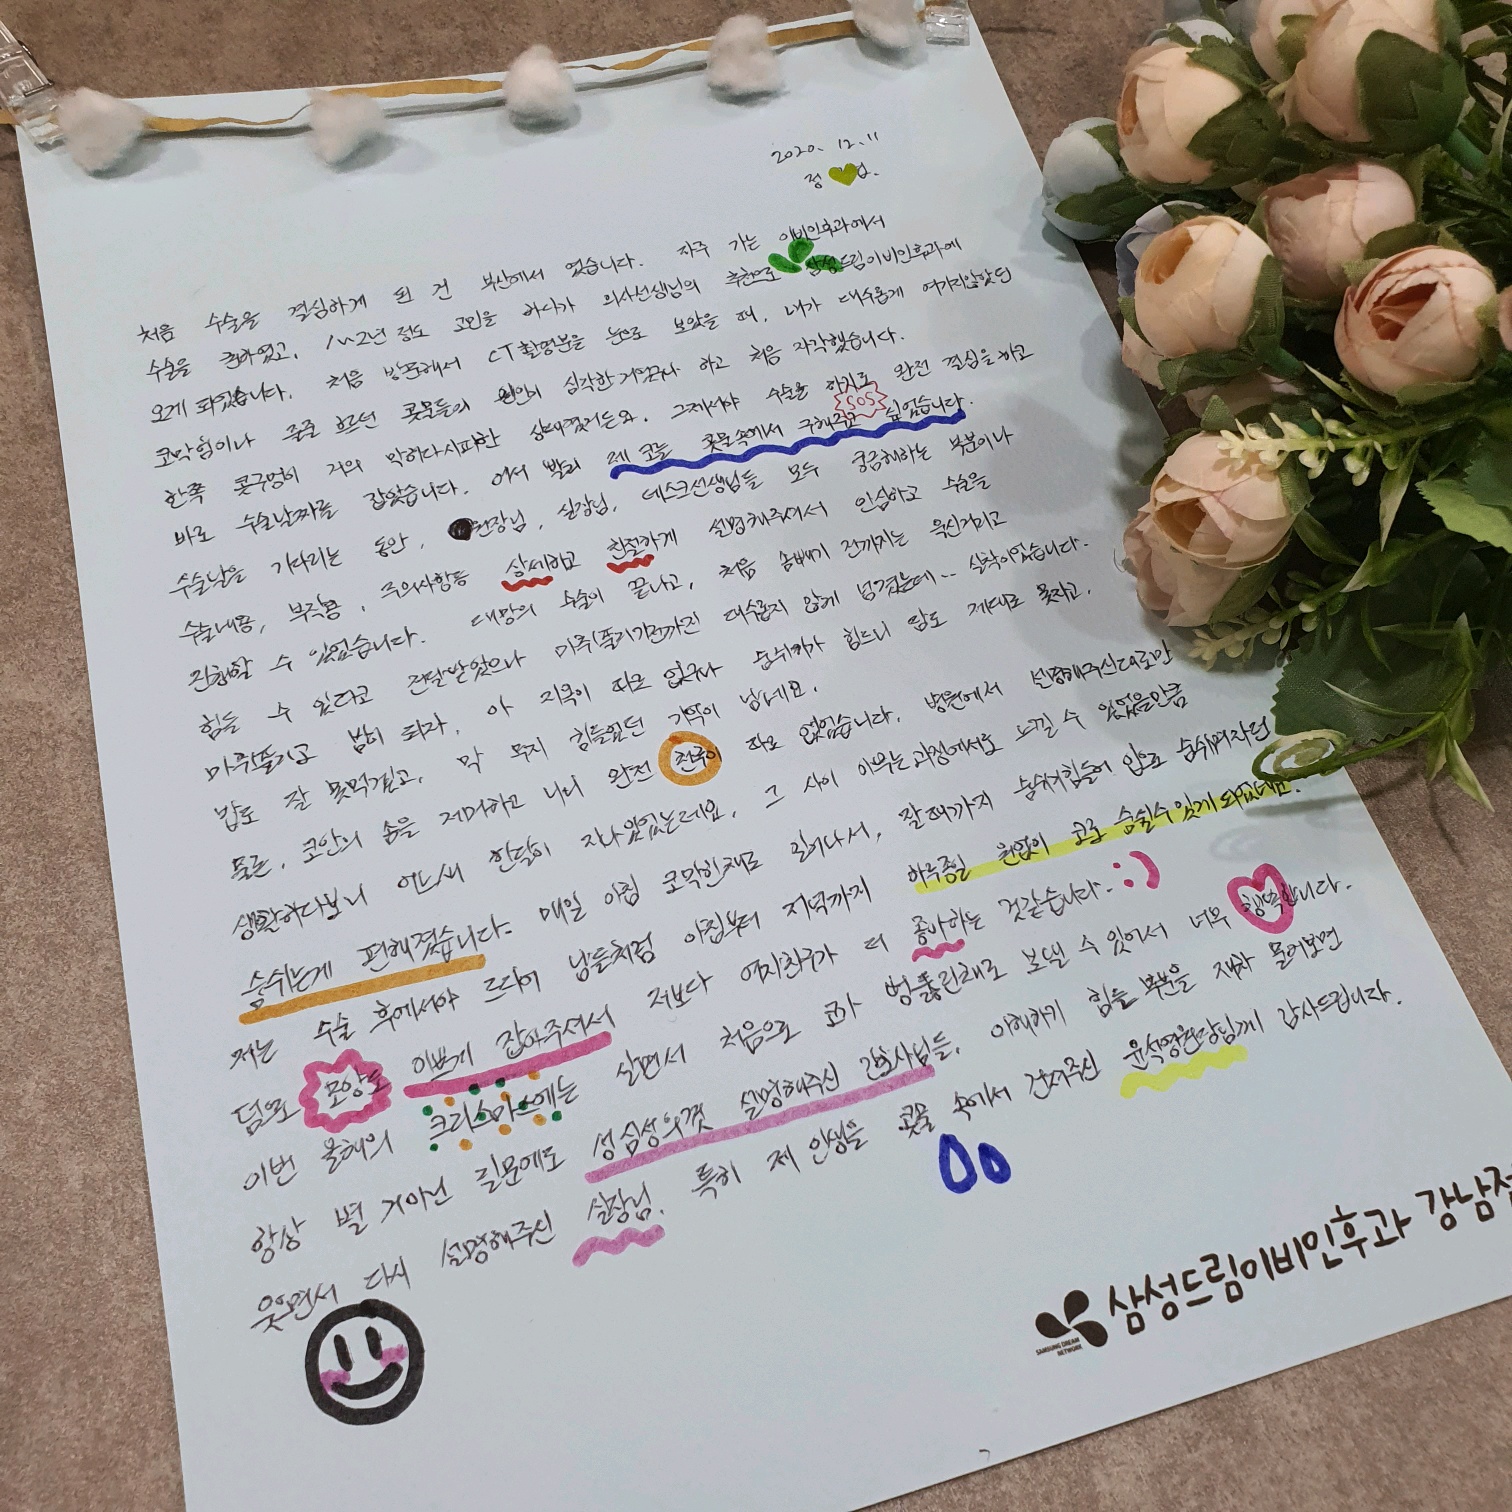 2020. 12. 11
정 님.
처음 수술을 결심하게 된 건 부산에서 였습니다. 자주 가는 이비인후과에서
수술을 권하였고, 1~2년 정도 고민을 하다가 의사선생님의 추천으로 삼성드림이비인후과에
오게 되었습니다. 처음 방문해서 CT촬영분을 눈으로 보았을 때, 내가 대수롭게 여기지않았던
코막힘이나 줄줄 흐르던 콧물들의 원인이 심각한거였구나 하고 처음 자각했습니다.
한쪽 콧구멍이 거의 막히다시피한 상태였거든요. 그제서야 수술을 하기로 완전 결심을 하고
SOS
바로 수술날짜를 잡았습니다. 어서 빨리 제 코를 콧물속에서 구해주고 싶었습니다.
수술날을 기다리는 동안, 원장님, 실장님, 데스크선생님들 모두 궁금해하는 부분이나
수술내용, 부작용, 주의사항등 상세하고 친절하게 설명해주셔서 안심하고 수술을
진행할 수 있었습니다. 대망의 수술이 끝나고, 처음 솜빼기 전까지는 욱신거리고
힘들 수 있다고 전달받았으나 마취풀기기전까진 대수롭지 않게 넘겼는데.. 실착이었습니다.
마취풀리고 밤이 되자, 아 지옥이 따로 없구나 숨쉬기가 힘드니 잠도 제대로 못자고,
밥도 잘 못먹겠고, 막 무지 힘들었던 기억이 납네요.
물론, 코안의 솜을 제거하고 나니 완전 천국이 따로 없었습니다. 병원에서 설명해주신대로만
생활하다보니 어느새 한달이 지나있었는데요, 그 사이 아무는 과정에서도 느낄 수 있었을만큼
숨쉬는게 편해졌습니다. 매일 아침 코막힌채로 일어나서, 잘때까지 숨쉬기힘들어 입으로 숨쉬며자던
저는 수술 후에서야 드디어 남들처럼 아침부터 저녁까지 하루종일 원없이 코로 숨쉴수있게 되었는데요.
덤으로 모양도 이쁘게 잡아주셔서 저보다 여자친구가 더 좋아하는 것같습니다. :)
이번 올해의 크리스마스에는 살면서 처음으로 코가 뻥뚫린채로 보낼 수 있어서 너무 행복합니다.
항상 별 거아닌 질문에도 성심성의껏 설명해주신 간호사님들, 이해하기 힘든 부분을 재차 물어보면
웃으면서 다시 설명해주신 실장님, 특히 제 인생을 콧물 속에서 건져주신 윤석영원장님께 감사드립니다.
삼성드림이비인후과 강남점
SAMSUNG DREAM
NETWORK